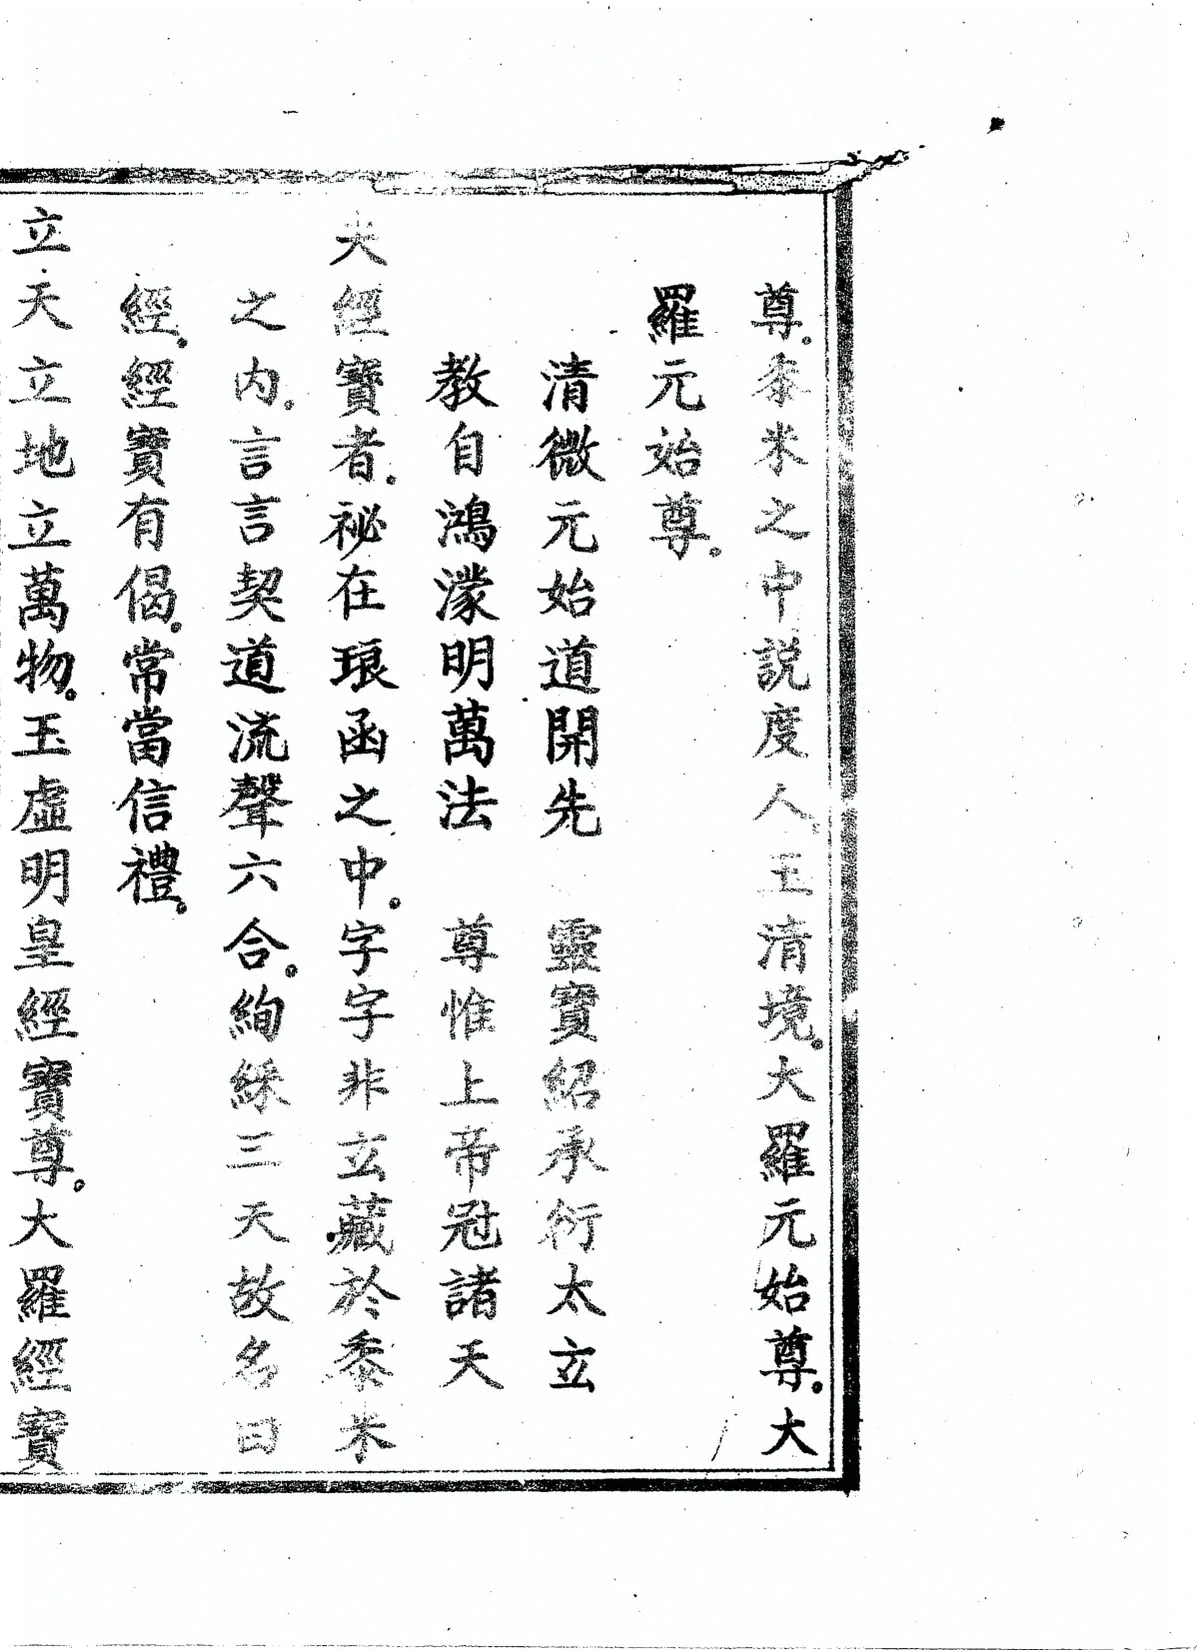 尊。黍米之中説度人。玉清境。大羅元始尊。大
羅元始尊。
清微元始道開先　靈寶紹承衍太玄
教自鴻濛明萬法　尊惟上帝冠諸天
夫經寶者。祕在琅函之中。字字非玄藏於黍米
之内。言言契道流聲六合。絢綵三天故名曰
經。經寶有偈。常當信禮。
立天立地立萬物。玉虛明皇經寶尊。大羅經寶